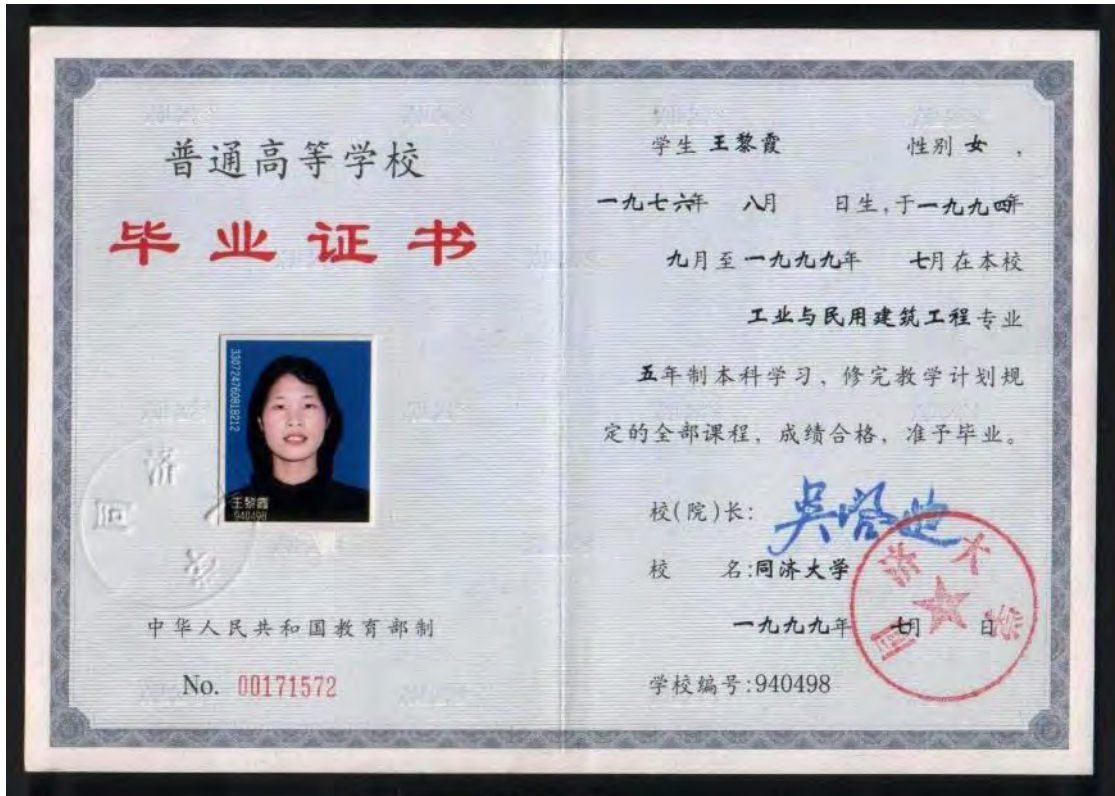 普通高等学校
毕业证书
330724760818212
王黎霞
940498
中华人民共和国教育部制
No. 00171572
学生 王黎霞 性别 女 ,
一九七六年 八月 日生,于一九九四年
九月至一九九九年 七月在本校
工业与民用建筑工程专业
五年制本科学习、修完教学计划规
定的全部课程,成绩合格,准予毕业。
校(院)长: 吴启迪
校 名:同济大学
一九九九年 七月 日
学校编号:940498
同济大学
同济大学